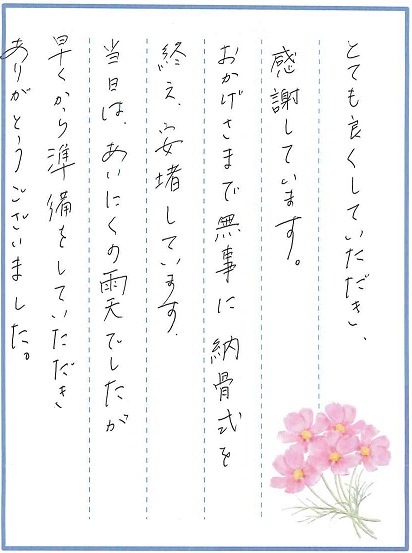 とても良くしていただき、
感謝しています。
おかげさまで無事に納骨式を
終え、安堵しています。
当日は、あいにくの雨天でしたが
早くから準備をしていただき
ありがとうございました。